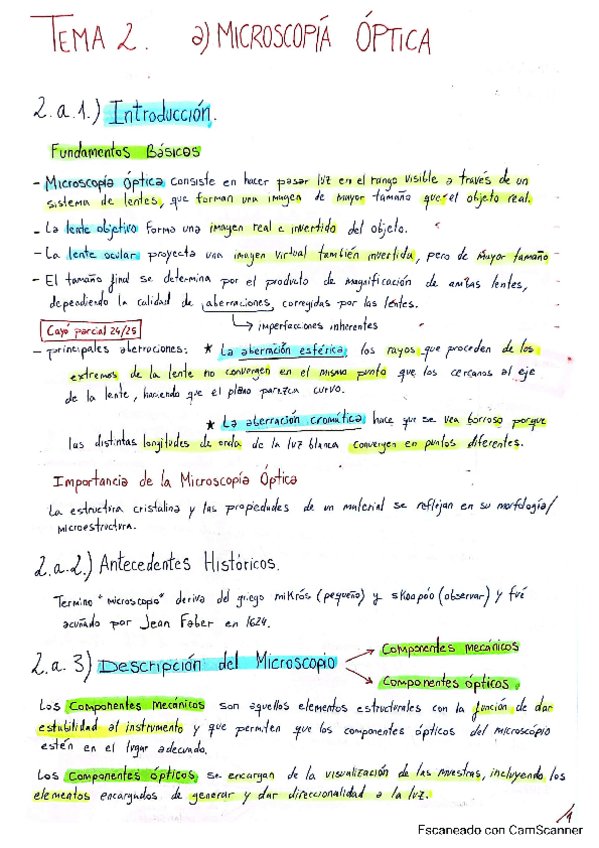 TEMA 2. a) MICROSCOPÍA ÓPTICA
2.a.1.) Introducción.
Fundamentos Básicos
- Microscopía óptica consiste en hacer pasar luz en el rango visible a través de un
sistema de lentes, que forman una imagen de mayor tamaño que el objeto real.
- La lente objetivo forma una imagen real e invertida del objeto.
- La lente ocular proyecta una imagen virtual también invertida, pero de mayor tamaño
- El tamaño final se determina por el producto de magnificación de ambas lentes,
dependiendo la calidad de aberraciones corregidas por las lentes.
↳ imperfecciones inherentes
Cayó parcial 24/25
- principales aberraciones: ★ La aberración esférica, los rayos que proceden de los
extremos de la lente no convergen en el mismo punto que los cercanos al eje
de la lente, haciendo que el plano parezca curvo.
★ La aberración cromática hace que se vea borroso porque
las distintas longitudes de onda de la luz blanca convergen en puntos diferentes.
Importancia de la Microscopía Óptica
La estructura cristalina y las propiedades de un material se reflejan en su morfología/
microestructura.
2.a.2.) Antecedentes Históricos.
Termino "microscopio" deriva del griego mikrós (pequeño) y skoopéo (observar) y fué
acuñado por Jean Faber en 1624.
2.a.3) Descripción del Microscopio
Componentes mecánicos
Componentes ópticos.
Los Componentes Mecánicos son aquellos elementos estructurales con la función de dar
estabilidad al instrumento y que permiten que los componentes ópticos del microscópio
estén en el lugar adecuado.
Los Componentes ópticos, se encargan de la visualización de las muestras, incluyendo los
elementos encargados de generar y dar direccionalidad a la luz.
1
Escaneado con CamScanner